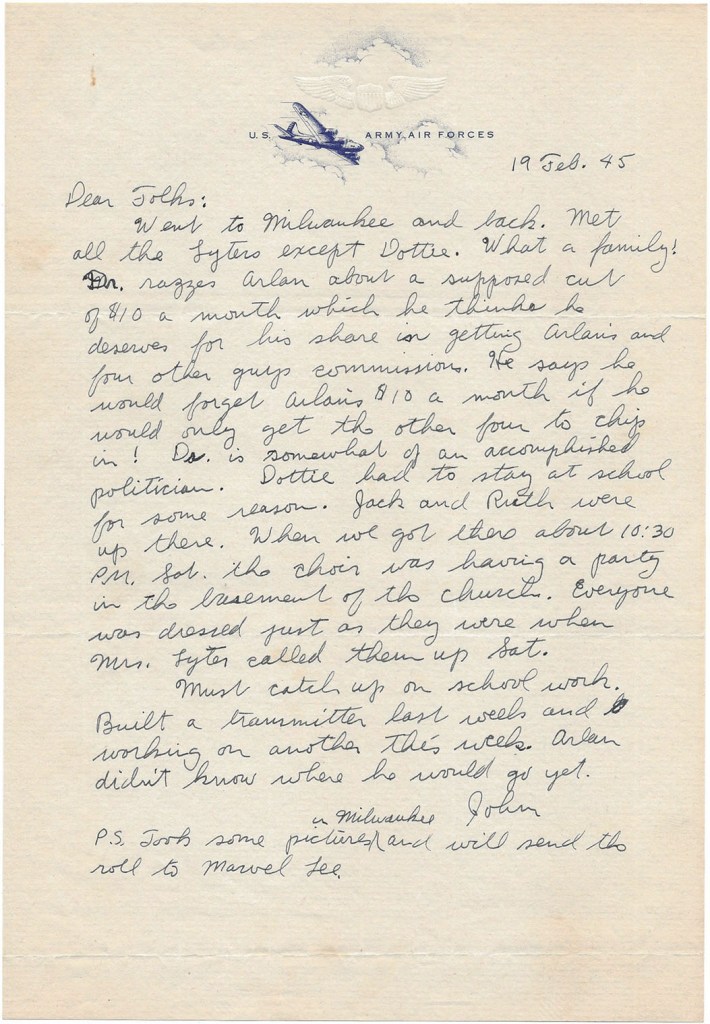 U.S. ARMY AIR FORCES
19 Feb. 45
Dear Folks:
Went to Milwaukee and back. Met
all the Lyters except Dottie. What a family!
Dr. razzes Arlan about a supposed cut
of $10 a month which he thinks he
deserves for his share in getting Arlan's and
four other guys commissions. He says he
would forget Arlan's $10 a month if he
would only get the other four to chip
in! Dr. is somewhat of an accomplished
politician. Dottie had to stay at school
for some reason. Jack and Ruth were
up there. When we got there about 10:30
P.M. Sat. the choir was having a party
in the basement of the church. Everyone
was dressed just as they were when
Mrs. Lyter called them up Sat.
Must catch up on school work.
Built a transmitter last week and
working on another this week. Arlan
didn't know where he would go yet.
John
P.S. Took some pictures in Milwaukee and will send the
roll to Marvel Lee.